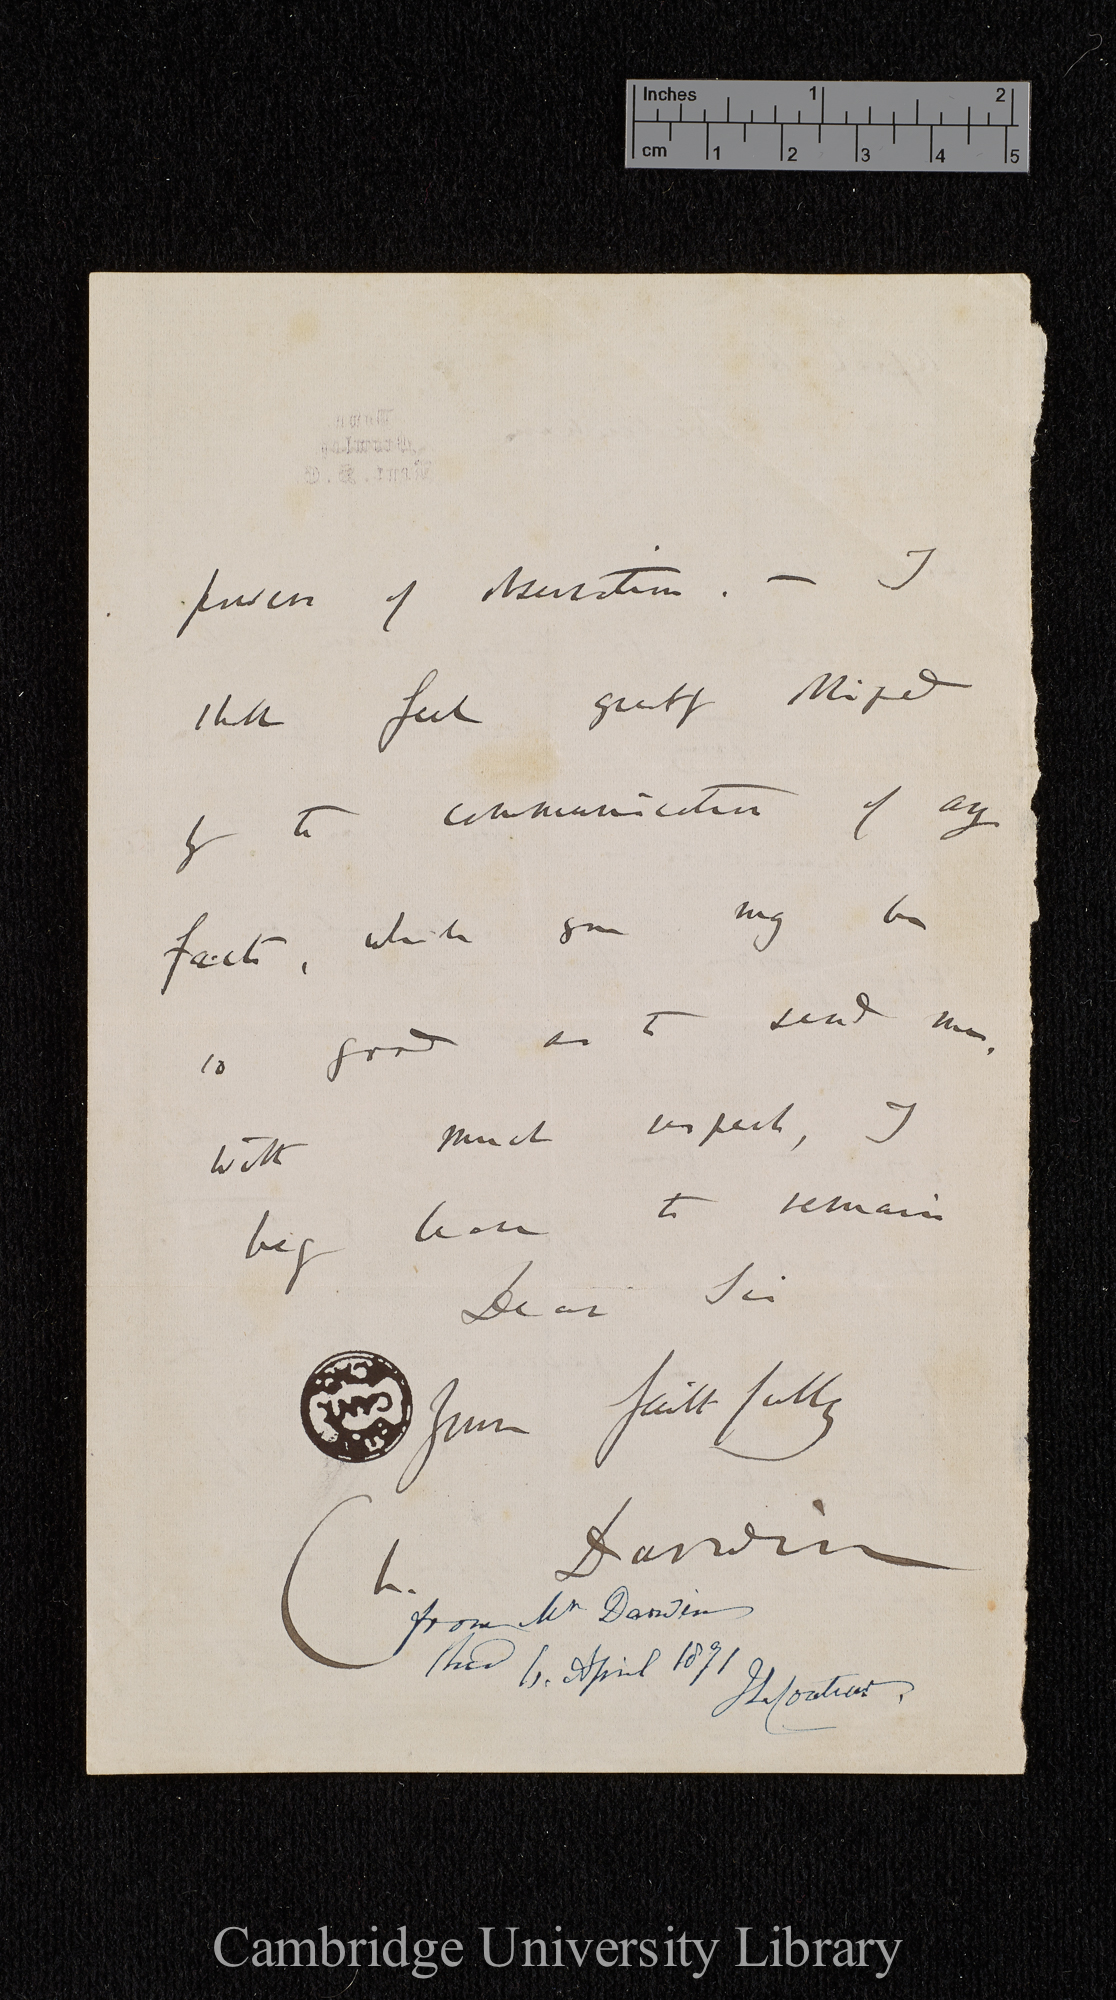 Inches 1 2
cm 1 2 3 4 5
powers of observation. — I
shall feel greatly obliged
by the communication of any
facts, which you may be
so good as to send me.
With much respect, I
beg leave to remain
Dear Sir
Yours faithfully
Ch. Darwin
from Mr Darwin
April 1871
Cambridge University Library